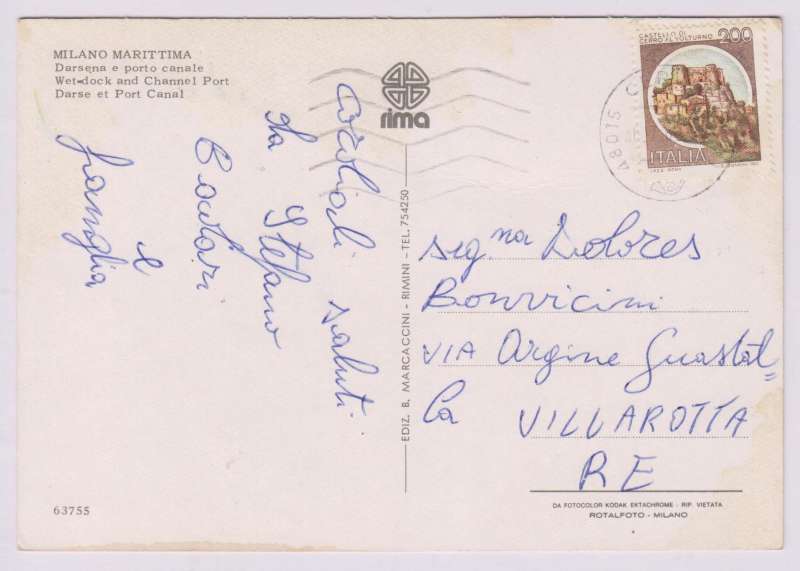 MILANO MARITTIMA
Darsena e porto canale
Wet-dock and Channel Port
Darse et Port Canal
rima
cordiali saluti
da Stefano
e
famiglia
EDIZ. B. MARCACCINI - RIMINI - TEL. 754250
CASTELLO DI
CERRO AL VOLTURNO
200
ITALIA
48015
sig.na Dolores
Bonvicini
VIA Argine Guastal=
la VILLAROTTA
RE
63755
DA FOTOCOLOR KODAK EKTACHROME - RIP. VIETATA
ROTALFOTO - MILANO